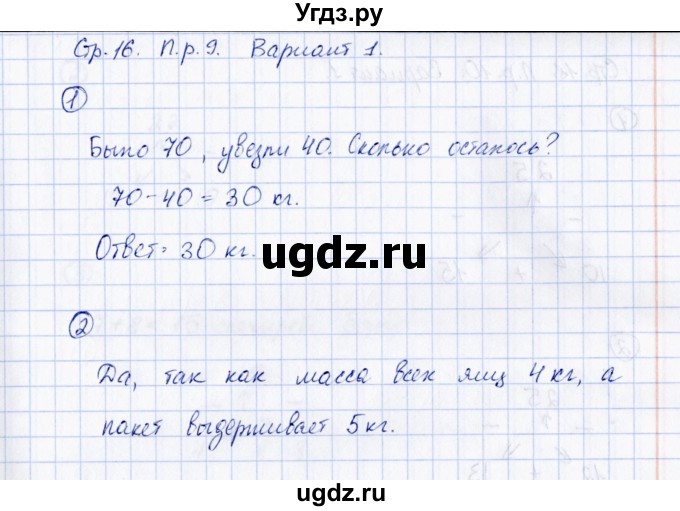 Угдз.ру
Стр. 16. П.р. 9. Вариант 1.
1
Было 70, увезли 40. Сколько осталось?
70-40=30 кг.
Ответ: 30 кг.
ugdz.ru
2
Да, так как масса всех яиц 4 кг, а
пакет выдерживает 5 кг.
ugdz.ru